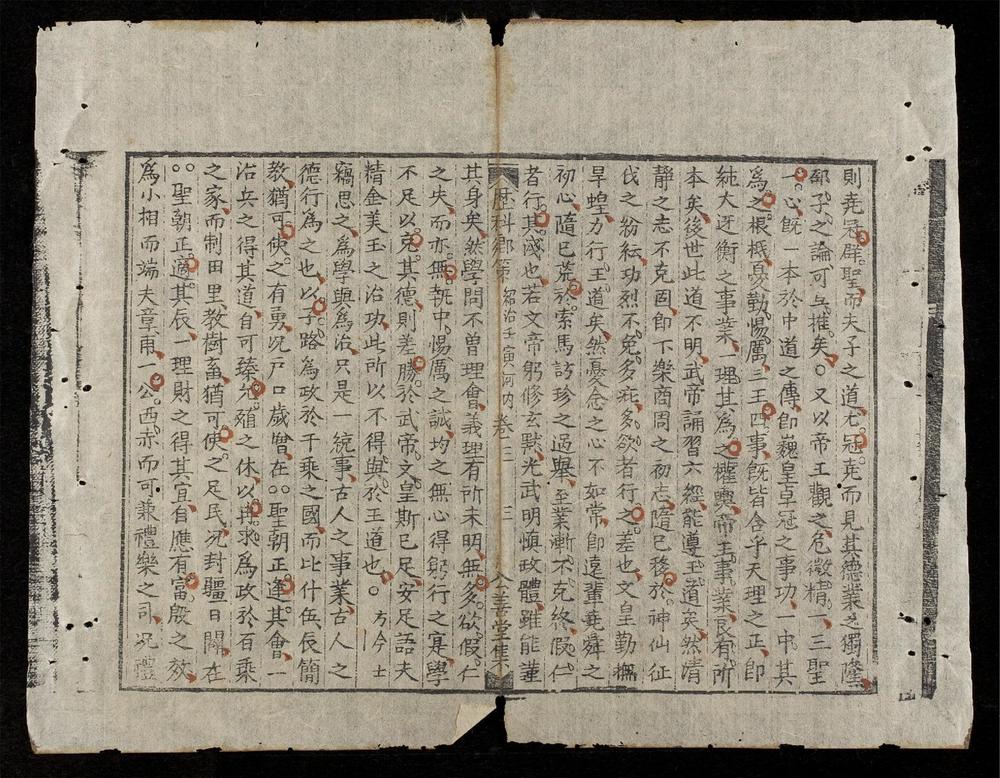 則堯冠辟聖而夫子之道尤冠堯而見其德業之獨隆
邵子之論可㪯搉矣○又以帝王觀之危微精一三聖
一心既一本於中道之傳卽巍皇卓冠之事功一中其
爲之根柢憂勤惕厲二王四事既皆合乎天理之正卽
純大迓衡之事業一理其爲之權輿帝王事業良有所
本矣後世此道不明武帝誦習六經能遵王道矣然清
静之志不克固卽下樂商周之初志隨已移於神仙征
伐之紛紜功烈不免多疵多欲者行之差也文皇勤撫
旱蝗力行王道矣然憂念之心不如常卽遠軰堯舜之
初心隨已荒於索馬訪珍之過舉至業漸不克終假仁
者行其淺也若文帝躬修玄默光武明慎政體雖能謹
歴科郷策 紹治壬寅河内 卷三 三 八善堂集
其身矣然學問不曽理會義理有所未明無多欲假仁
之失而亦無執中惕厲之誠均之無心得躬行之寔學
不足以克其德則差勝於武帝文皇斯已足安足語夫
精金美玉之治功此所以不得與於王道也 方今士
竊思之爲學與爲治只是一統事古人之事業古人之
德行爲之也以子路爲政於千乘之國而比什伍長簡
教猶可使之有勇况戸口歲增在○○聖朝正逢其會一
治兵之得其道自可臻允殖之休以冉求爲政於百乘
之家而制田里教樹畜猶可使之足民况封疆日闢在
○○聖朝正適其辰一理財之得其宜自應有富殷之效
爲小相而端夫章甫一公西赤而可兼禮樂之司况禮